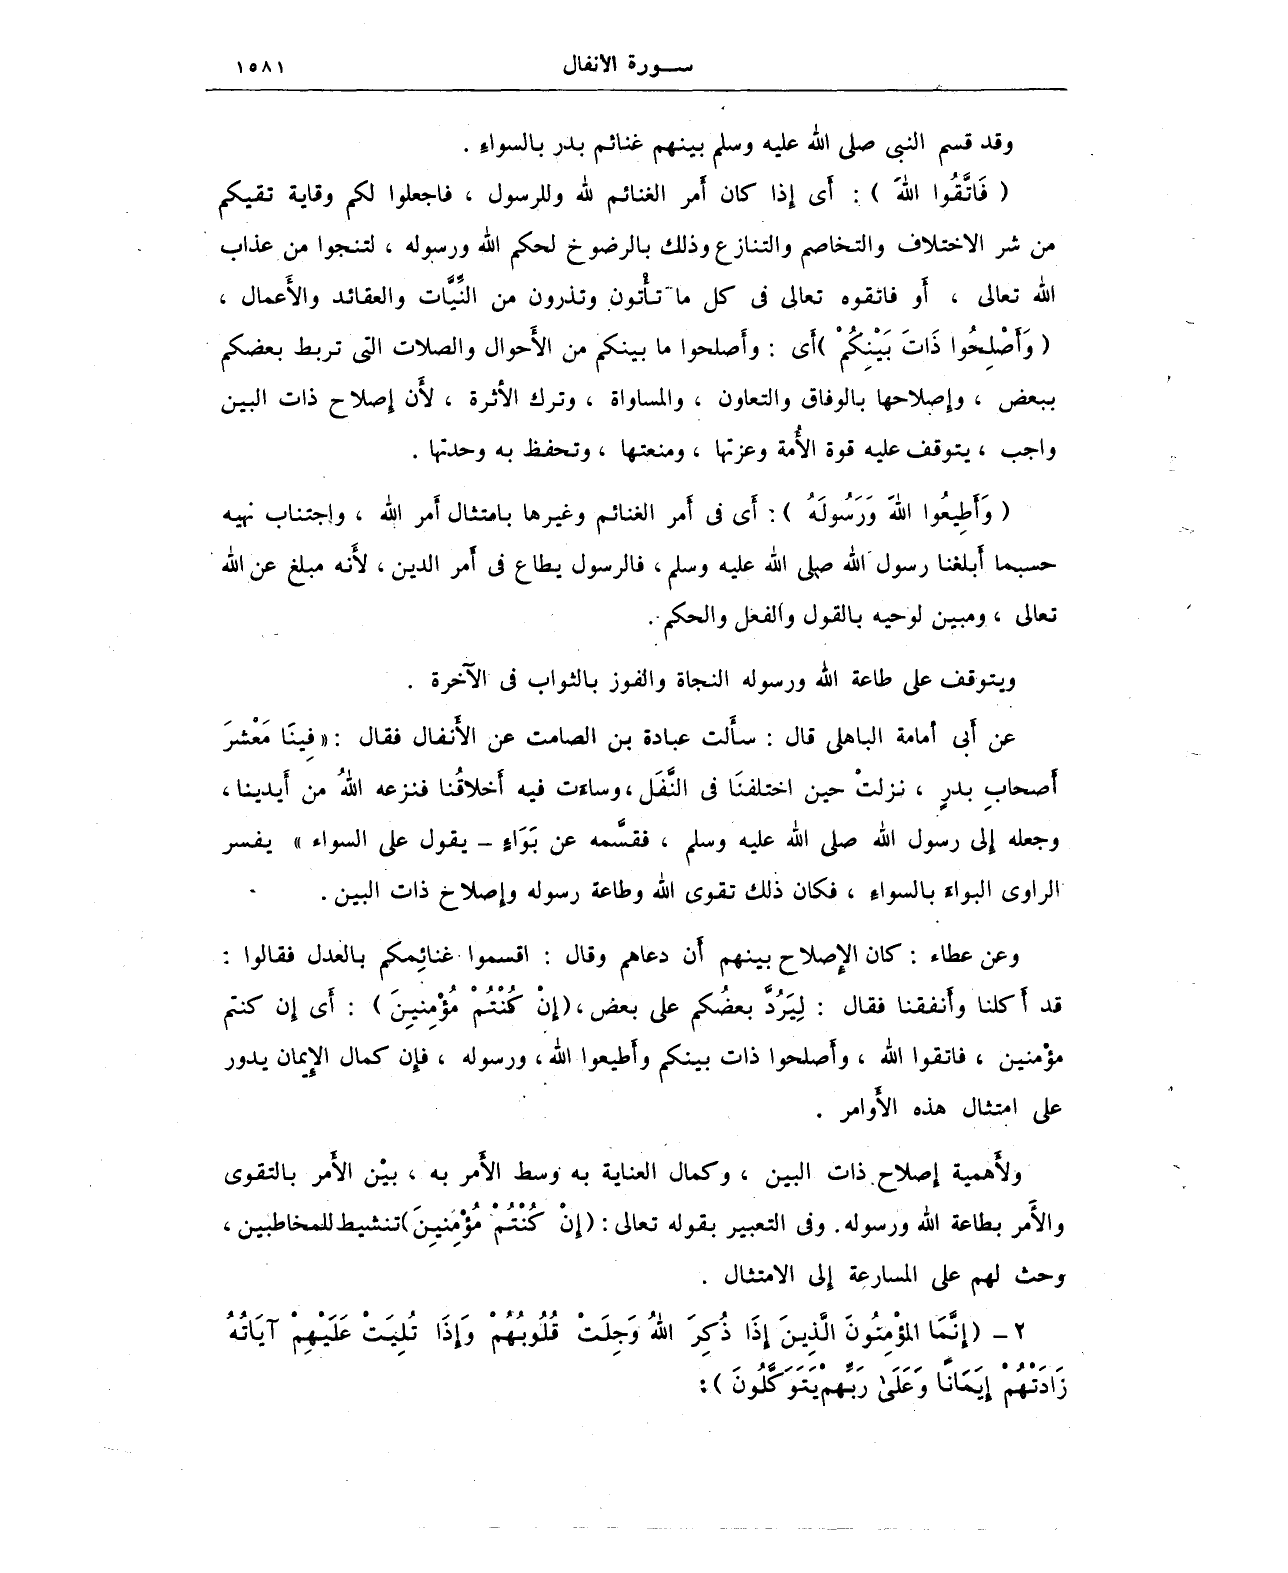 سورة الانفال ١٥٨١
وقد قسم النبى صلى الله عليه وسلم بينهم غنائم بدر بالسواء .
( فَاتَّقُوا اللهَ ) : أَى إذا كان أمر الغنائم لله وللرسول ، فاجعلوا لكم وقاية تقيكم
من شر الاختلاف والتخاصم والتنازع وذلك بالرضوخ لحكم الله ورسوله ، لتنجوا من عذاب
الله تعالى ، أو فاتقوه تعالى فى كل ما تأْتون وتذرون من النِّيَّات والعقائد والأَعمال ،
( وَأَصْلِحُوا ذَاتَ بَيْنِكُمْ )أى : وأَصلحوا ما بينكم من الأَحوال والصلات التى تربط بعضكم
ببعض ، وإصلاحها بالوفاق والتعاون ، والمساواة ، وترك الأثرة ، لأَن إصلاح ذات البين
واجب ، يتوقف عليه قوة الأُمة وعزتها ، ومنعتها ، وتحفظ به وحدتها .
( وَأَطِيعُوا اللهَ وَرَسُولَهُ ) : أَى فى أمر الغنائم وغيرها بامتثال أمر الله ، واجتناب نهيه
حسبما أَبلغنا رسول الله صلى الله عليه وسلم ، فالرسول يطاع فى أمر الدين ، لأَنه مبلغ عن الله
تعالى ، ومبين لوحيه بالقول والفعل والحكم .
ويتوقف على طاعة الله ورسوله النجاة والفوز بالثواب فى الآخرة .
عن أَبى أمامة الباهلى قال : سأَلت عبادة بن الصامت عن الأَنفال فقال : « فِينَا مَعْشَرَ
أَصحابِ بدرٍ ، نزلتْ حين اختلفنَا فى النَّفَل ، وساءت فيه أخلاقُنا فنزعه اللهُ من أَيدينا ،
وجعله إلى رسول الله صلى الله عليه وسلم ، فقسَّمه عن بَوَاءٍ – يقول على السواء » يفسر
الراوى البواء بالسواء ، فكان ذلك تقوى الله وطاعة رسوله وإصلاح ذات البين .
وعن عطاء : كان الإصلاح بينهم أَن دعاهم وقال : اقسموا غنائِمكم بالعدل فقالوا :
قد أكلنا وأَنفقنا فقال : لِيَرُدَّ بعضُكم على بعض ، ( إِنْ كُنْتُمْ مُؤْمِنِينَ ) : أَى إن كنتم
مؤْمنين ، فاتقوا الله ، وأَصلحوا ذات بينكم وأَطيعوا الله ، ورسوله ، فإن كمال الإِيمان يدور
على امتثال هذه الأَوامر .
ولأَهمية إصلاح ذات البين ، وكمال العناية به وسط الأمر به ، بيْن الأَمر بالتقوى
والأَمر بطاعة الله ورسوله . وفى التعبير بقوله تعالى : (إِنْ كُنْتُمْ مُؤْمِنِينَ)تنشيط للمخاطبين ،
وحث لهم على المسارعة إلى الامتثال .
٢ – (إِنَّمَا المُؤْمِنُونَ الَّذِينَ إِذَا ذُكِرَ اللهُ وَجِلَتْ قُلُوبُهُمْ وَإِذَا تُلِيَتْ عَلَيْهِمْ آيَاتُهُ
زَادَتْهُمْ إِيمَانًا وَعَلَىٰ رَبِّهِمْ يَتَوَكَّلُونَ ) :